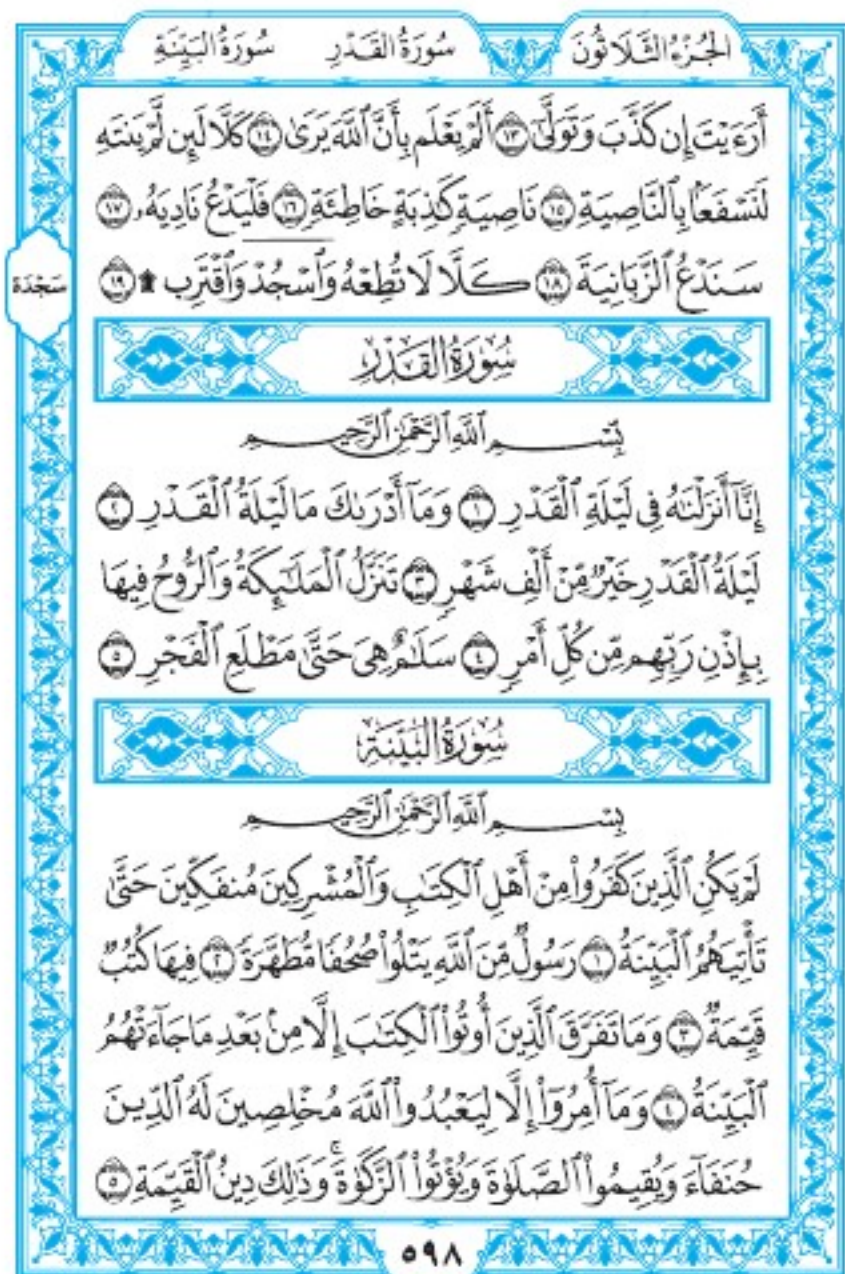 الجُزْءُ الثَّلَاثُونَ سُورَةُ القَدْرِ سُورَةُ البَيِّنَةِ
أَرَءَيْتَ إِن كَذَّبَ وَتَوَلَّىٰٓ ١٣ أَلَمْ يَعْلَم بِأَنَّ ٱللَّهَ يَرَىٰ ١٤ كَلَّا لَئِن لَّمْ يَنتَهِ
لَنَسْفَعًۢا بِٱلنَّاصِيَةِ ١٥ نَاصِيَةٍ كَٰذِبَةٍ خَاطِئَةٍ ١٦ فَلْيَدْعُ نَادِيَهُۥ ١٧
سَنَدْعُ ٱلزَّبَانِيَةَ ١٨ كَلَّا لَا تُطِعْهُ وَٱسْجُدْ وَٱقْتَرِب ۩ ١٩
سَجْدَة
سُورَةُ القَدْرِ
بِّسْمِ ٱللَّهِ ٱلرَّحْمَٰنِ ٱلرَّحِيمِ
إِنَّآ أَنزَلْنَٰهُ فِى لَيْلَةِ ٱلْقَدْرِ ١ وَمَآ أَدْرَىٰكَ مَا لَيْلَةُ ٱلْقَدْرِ ٢
لَيْلَةُ ٱلْقَدْرِ خَيْرٌ مِّنْ أَلْفِ شَهْرٍ ٣ تَنَزَّلُ ٱلْمَلَٰٓئِكَةُ وَٱلرُّوحُ فِيهَا
بِإِذْنِ رَبِّهِم مِّن كُلِّ أَمْرٍ ٤ سَلَٰمٌ هِىَ حَتَّىٰ مَطْلَعِ ٱلْفَجْرِ ٥
سُورَةُ البَيِّنَةِ
بِسْمِ ٱللَّهِ ٱلرَّحْمَٰنِ ٱلرَّحِيمِ
لَمْ يَكُنِ ٱلَّذِينَ كَفَرُوا۟ مِنْ أَهْلِ ٱلْكِتَٰبِ وَٱلْمُشْرِكِينَ مُنفَكِّينَ حَتَّىٰ
تَأْتِيَهُمُ ٱلْبَيِّنَةُ ١ رَسُولٌ مِّنَ ٱللَّهِ يَتْلُوا۟ صُحُفًا مُّطَهَّرَةً ٢ فِيهَا كُتُبٌ
قَيِّمَةٌ ٣ وَمَا تَفَرَّقَ ٱلَّذِينَ أُوتُوا۟ ٱلْكِتَٰبَ إِلَّا مِنۢ بَعْدِ مَا جَآءَتْهُمُ
ٱلْبَيِّنَةُ ٤ وَمَآ أُمِرُوٓا۟ إِلَّا لِيَعْبُدُوا۟ ٱللَّهَ مُخْلِصِينَ لَهُ ٱلدِّينَ
حُنَفَآءَ وَيُقِيمُوا۟ ٱلصَّلَوٰةَ وَيُؤْتُوا۟ ٱلزَّكَوٰةَ ۚ وَذَٰلِكَ دِينُ ٱلْقَيِّمَةِ ٥
٥٩٨